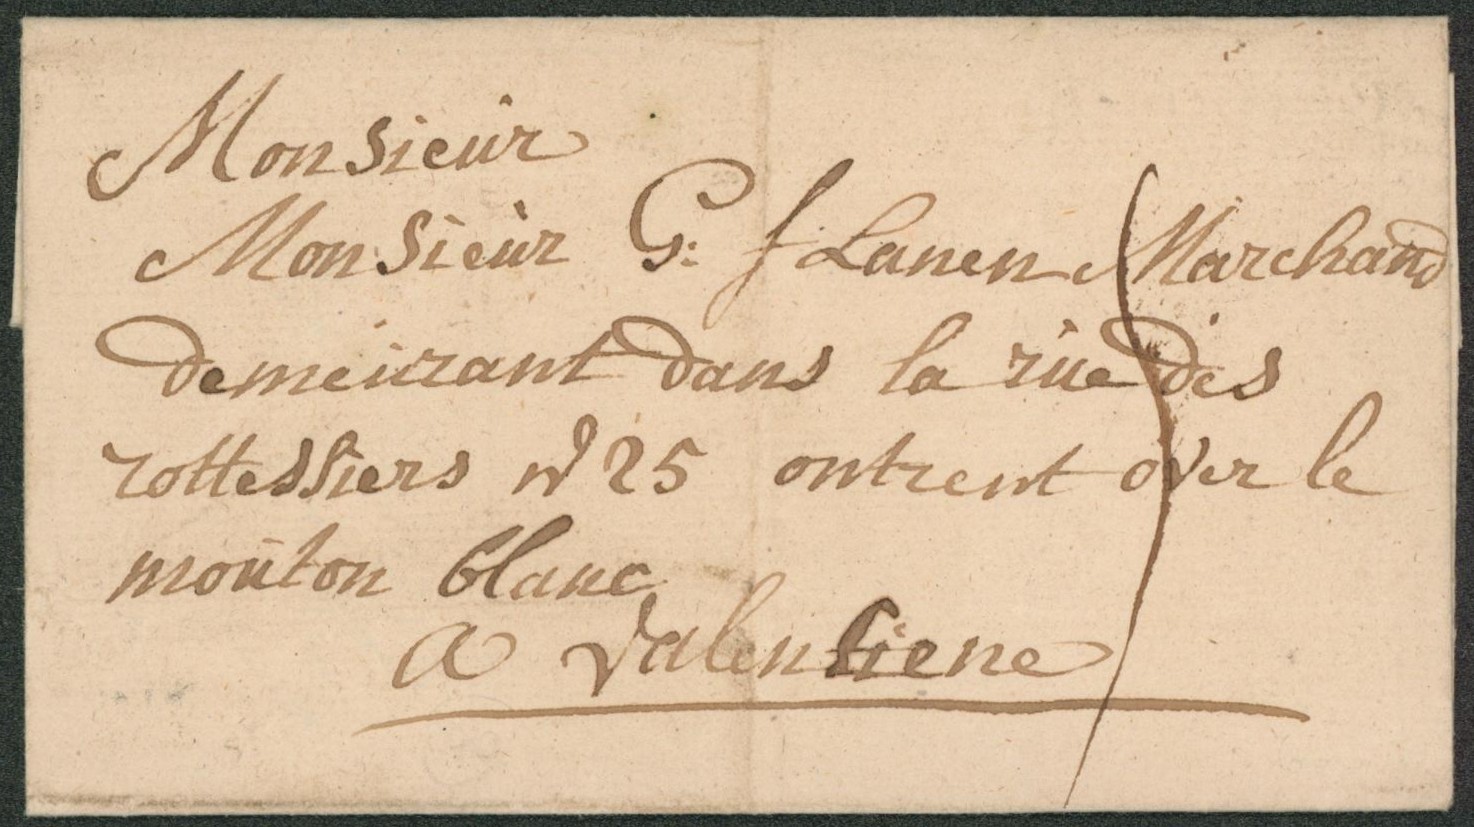 Monsieur
Monsieur G: f Lanen Marchand
demeurant dans la rue des
rottessiers N 25 ontrent over le
mouton blanc
a valensiene